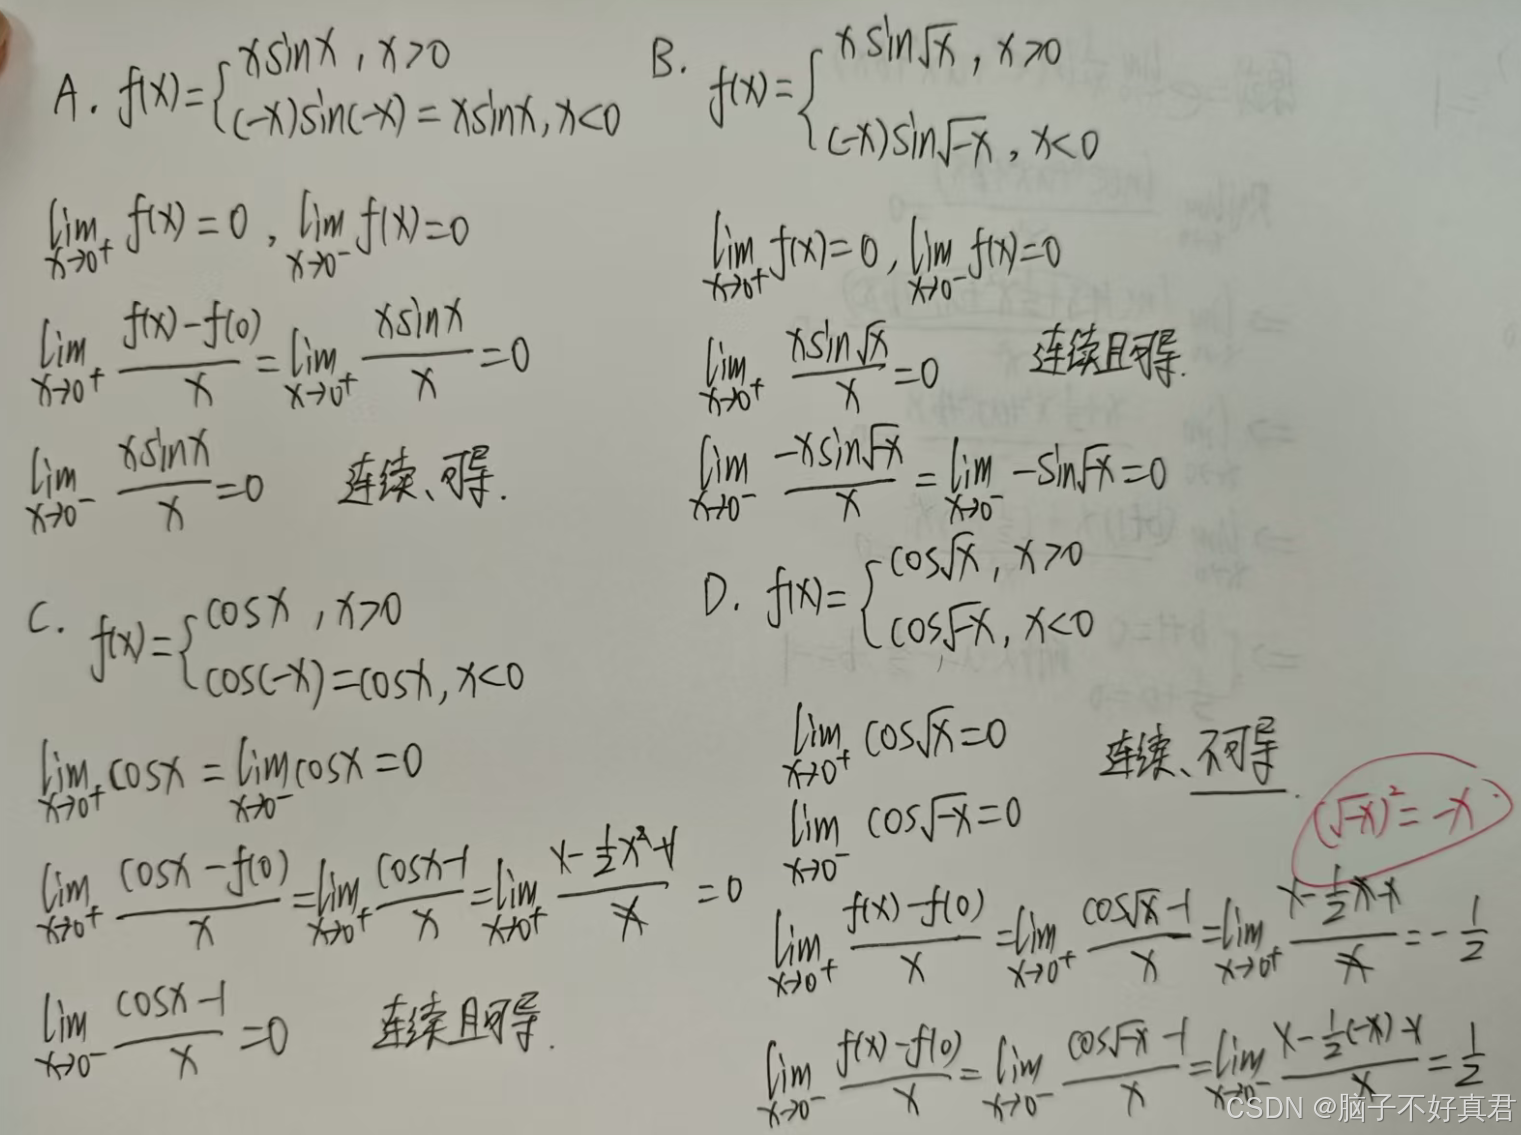 A. f(x)={xsinx, x>0
(-x)sin(-x)=xsinx, x<0
lim x→0⁺ f(x)=0, lim x→0⁻ f(x)=0
lim x→0⁺ (f(x)-f(0))/x = lim x→0⁺ xsinx/x =0
lim x→0⁻ xsinx/x =0 连续、可导.
B. f(x)={xsin√x, x>0
(-x)sin√-x, x<0
lim x→0⁺ f(x)=0, lim x→0⁻ f(x)=0
lim x→0⁺ xsin√x/x =0 连续且可导.
lim x→0⁻ -xsin√-x/x = lim x→0⁻ -sin√-x=0
C. f(x)={cosx, x>0
cos(-x)=cosx, x<0
lim x→0⁺ cosx = lim x→0⁻ cosx=0
lim x→0⁺ (cosx-f(0))/x = lim x→0⁺ (cosx-1)/x = lim x→0⁺ (1-½x²-1)/x =0
lim x→0⁻ (cosx-1)/x =0 连续且可导.
D. f(x)={cos√x, x>0
cos√-x, x<0
lim x→0⁺ cos√x=0 连续、不可导.
lim x→0⁻ cos√-x=0
(√-x)²=-x
lim x→0⁺ (f(x)-f(0))/x = lim x→0⁺ (cos√x-1)/x = lim x→0⁺ (1-½x-1)/x =-½
lim x→0⁻ (f(x)-f(0))/x = lim x→0⁻ (cos√-x-1)/x = lim x→0⁻ (1-½(-x)-1)/x =½
CSDN @脑子不好真君